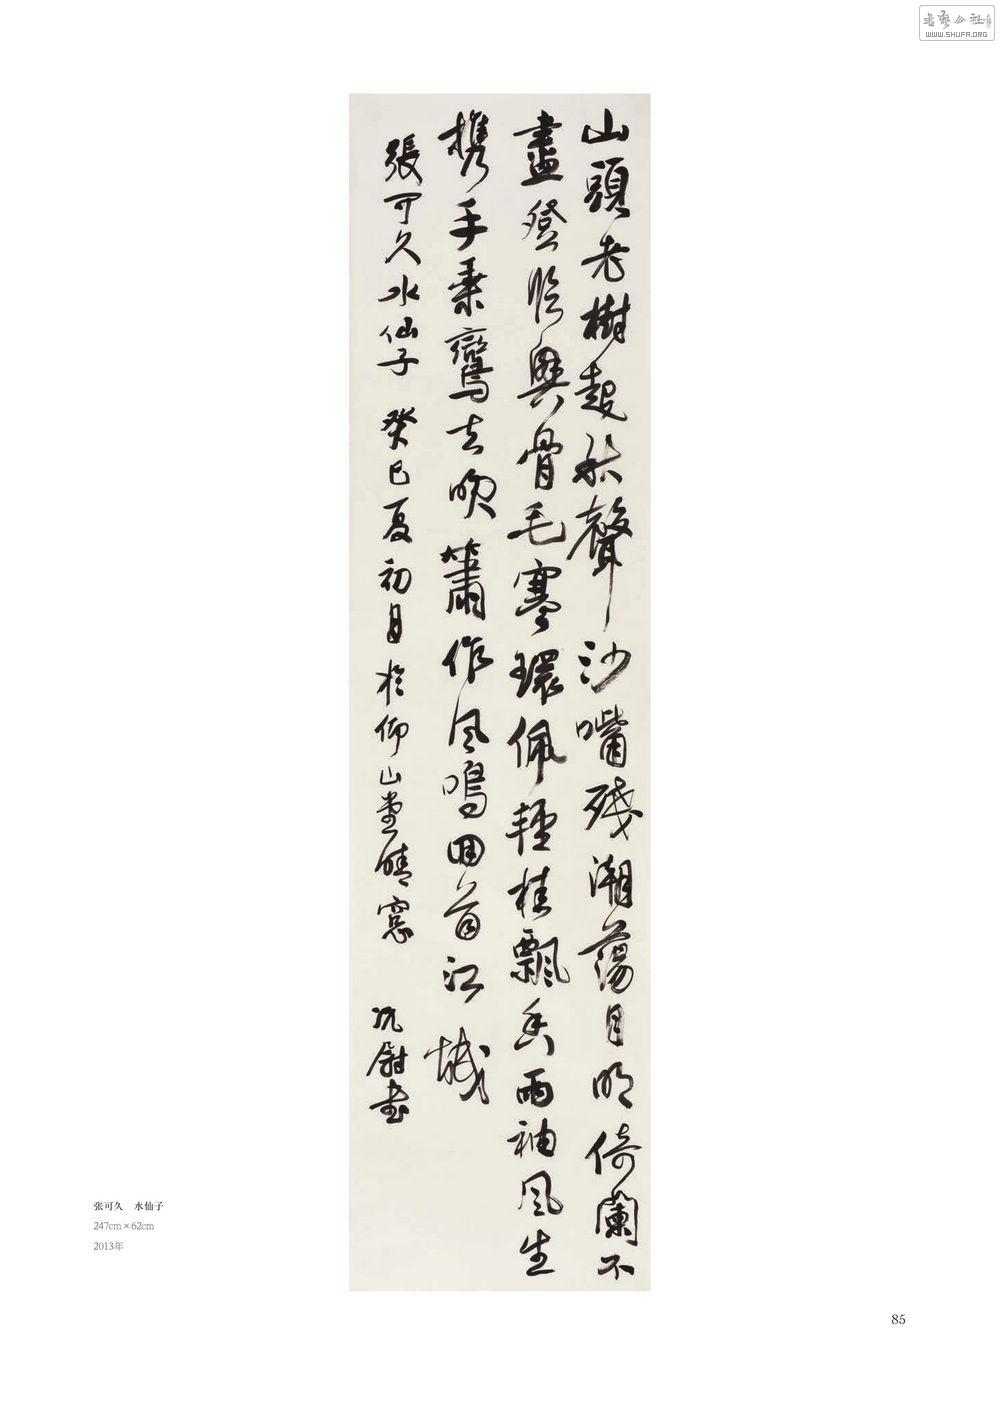 書藝公社
WWW.SHUFA.ORG
山頭老樹起秋聲沙嘴殘潮蕩月明倚闌不
盡登臨興骨毛寒環佩輕桂飄香兩袖風生
携手乘鸞去吹簫作鳳鳴回首江城
張可久水仙子 癸巳夏初月於仰山堂晴窓 尉书
张可久 水仙子
247cm×62cm
2013年
85